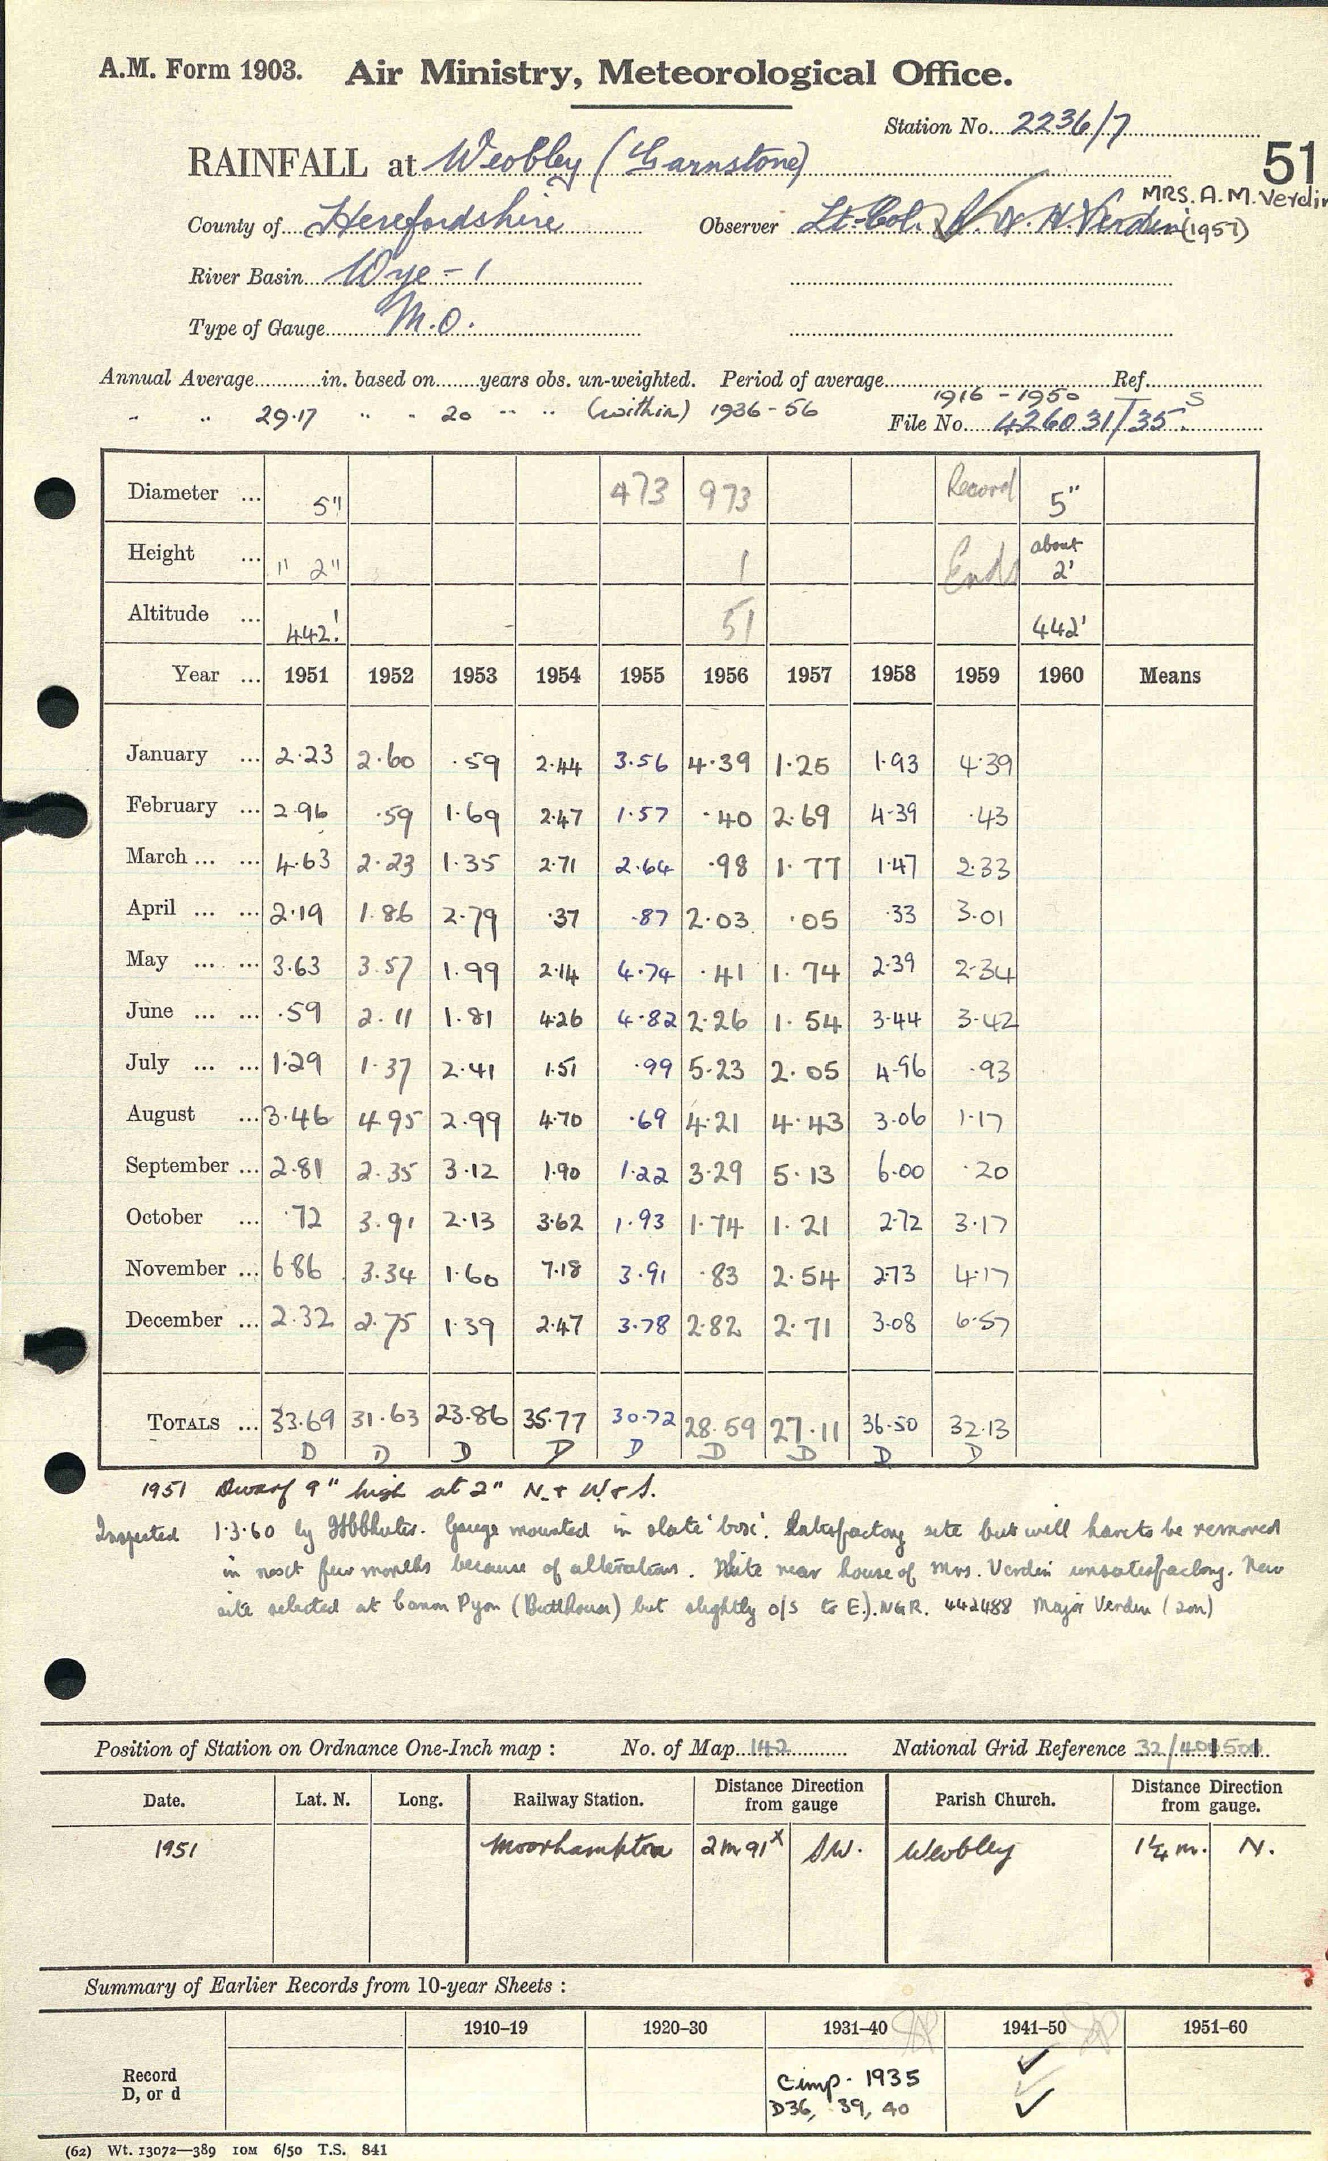 A.M. Form 1903. Air Ministry, Meteorological Office.
Station No. 2236/7
RAINFALL at Weobley (Garnstone)
51
MRS. A. M. Verdin
County of Herefordshire Observer Lt-Col. W. H. Verdin (1957)
River Basin Wye - 1
Type of Gauge M.O.
Annual Average in. based on years obs. un-weighted. Period of average Ref.
1916 - 1950
" " 29.17 " " 20 " " (within) 1936-56 File No. 426031/T35 S
Diameter ... 5" 473 973 Record 5"
Height ... 11" 2" 1 Ends about 2'
Altitude ... 442' 51 442'
Year ... 1951 1952 1953 1954 1955 1956 1957 1958 1959 1960 Means
January ... 2.23 2.60 .59 2.44 3.56 4.39 1.25 1.93 4.39
February ... 2.96 .59 1.69 2.47 1.57 .40 2.69 4.39 .43
March ... ... 4.63 2.23 1.35 2.71 2.64 .98 1.77 1.47 2.33
April ... ... 2.19 1.86 2.79 .37 .87 2.03 .05 .33 3.01
May ... ... 3.63 3.57 1.99 2.14 4.74 .41 1.74 2.39 2.34
June ... ... .59 2.11 1.81 4.26 4.82 2.26 1.54 3.44 3.42
July ... ... 1.29 1.37 2.41 1.51 .99 5.23 2.05 4.96 .93
August ... 3.46 4.95 2.99 4.70 .69 4.21 4.43 3.06 1.17
September ... 2.81 2.35 3.12 1.90 1.22 3.29 5.13 6.00 .20
October ... .72 3.91 2.13 3.62 1.93 1.74 1.21 2.72 3.17
November ... 6.86 3.34 1.60 7.18 3.91 .83 2.54 2.73 4.17
December ... 2.32 2.75 1.39 2.47 3.78 2.82 2.71 3.08 6.57
TOTALS ... 33.69 31.63 23.86 35.77 30.72 28.59 27.11 36.50 32.13
D D D D D D D D D
1951 Dwarf 9" high at 2" N. + W. + S.
Inspected 1.3.60 by Gauge mounted in slate 'box'. Satisfactory site but will have to be removed
in next few months because of alterations. Site near house of Mrs. Verdin unsatisfactory. New
site selected at Canon Pyon (Butthouse) but slightly o/s to E.). NGR. 442488 Major Verdin (son)
Position of Station on Ordnance One-Inch map : No. of Map 142 National Grid Reference 32/400500
Date. Lat. N. Long. Railway Station. Distance Direction from gauge Parish Church. Distance Direction from gauge.
1951 Moorhampton 2m 91x SW. Weobley 1¼ m. N.
Summary of Earlier Records from 10-year Sheets :
1910–19 1920–30 1931–40 1941–50 1951–60
Record
D, or d
Cimp. 1935
D36, 39, 40
(62) Wt. 13072—389 10M 6/50 T.S. 841